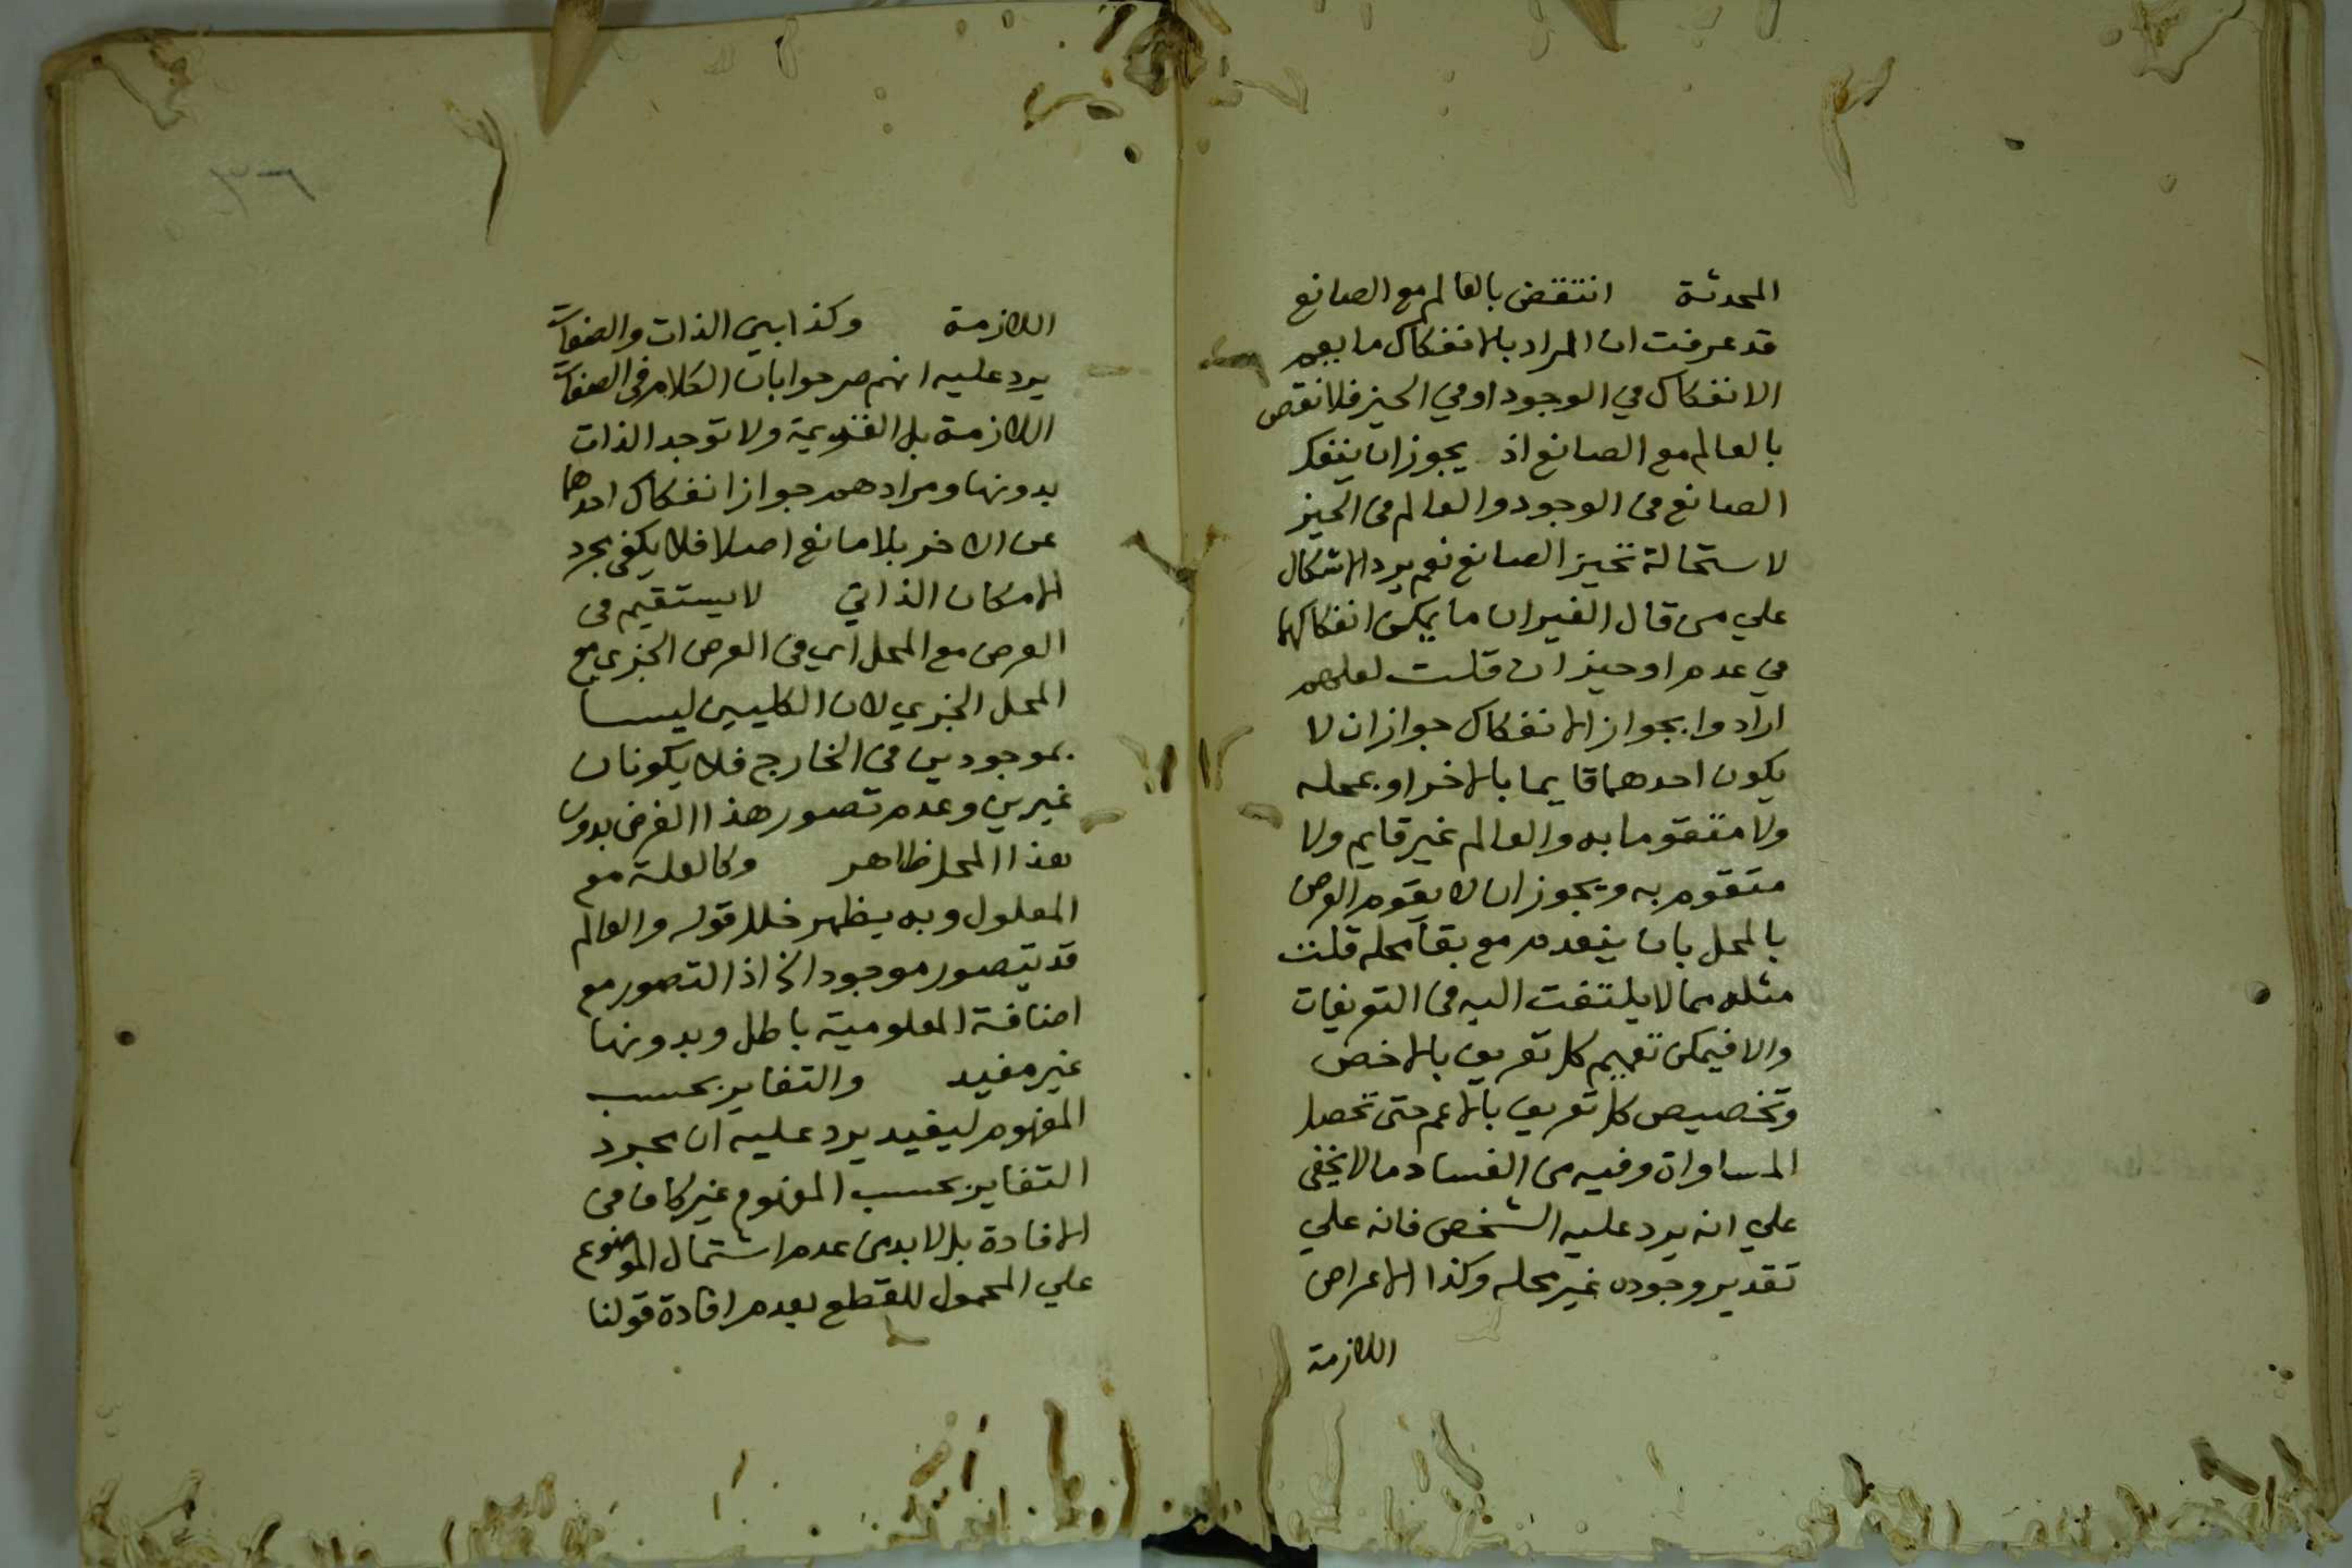 المحدثة انتقض بالعالم مع الصانع
قد عرفت ان المراد بالانفكاك ما يعم
الانفكاك في الوجود او في الحيز فلا نقص
بالعالم مع الصانع اذ يجوز ان ينفك
الصانع في الوجود والعالم في الحيز
لاستحالة تحيز الصانع نعم يرد الاشكال
علي من قال الغيران ما يمكن انفكاكهما
في عدم او حيز ان قلت لعلهم
ارادوا بجواز الانفكاك جواز ان لا
يكون احدهما قايما بالاخر او بمحله
ولا متقوما به والعالم غير قايم ولا
متقوم به ويجوز ان لا يقوم العرض
بالمحل بان ينعدم مع بقآ محله قلت
مثله مما لا يلتفت اليه في التعريفات
والا فيمكن تعميم كل تعريف بالاخص
وتخصيص كل تعريف بالاعم حتى تحصل
المساواة وفيه من الفساد ما لا يخفى
علي انه يرد عليه الشخص فانه علي
تقدير وجوده غير محله وكذا الاعراض
اللازمة
٣٦
اللازمة وكذا بين الذات والصفات
يرد عليه انهم صرحوا بان الكلام في الصفات
اللازمة بل القديمة ولا توجد الذات
بدونها ومرادهم جواز انفكاك احدهما
عن الاخر بلا مانع اصلا فلا يكفى مجرد
الامكان الذاتي لا يستقيم في
العرض مع المحل اي في العرض الجزي مع
المحل الجزي لان الكليين ليسا
بموجودين في الخارج فلا يكونان
غيرين وعدم تصور هذا العرض بدون
هذا المحل ظاهر وكالعلة مع
المعلول وبه يظهر خلل قوله والعالم
قد يتصور موجودا الخ اذ التصور مع
اضافة المعلومية باطل وبدونها
غير مفيد والتغاير بحسب
المفهوم ليفيد يرد عليه ان مجرد
التغاير بحسب المفهوم غير كاف في
الافادة بل لا بد من عدم اشتمال الموضوع
علي المحمول للقطع بعدم افادة قولنا